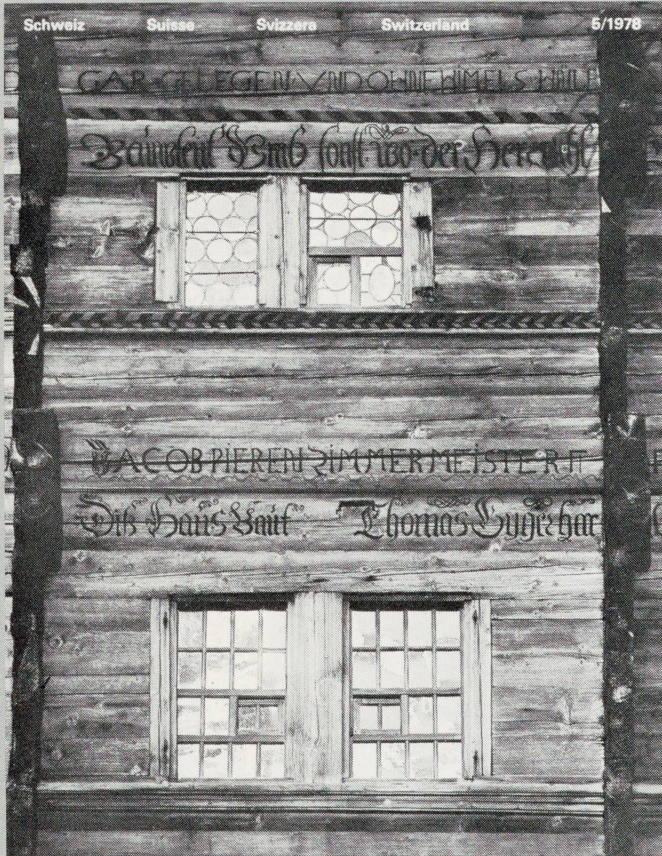 Schweiz Suisse Svizzera Switzerland 5/1978
GAR GELEGEN VND OHNE HIMELS HÜLF
Bauwleut Vmb sonst wo der Herr nicht
JACOB PIEREN ZIMMERMEISTER
Diß Haus Baut Thomas Gyger